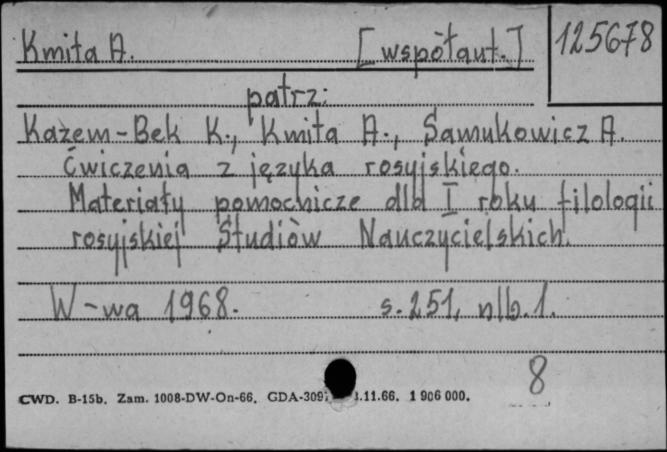 Kmita A. [współaut.] 125678
patrz:
Kazem-Bek K., Kmita A., Samukowicz A.
Ćwiczenia z języka rosyjskiego.
Materiały pomocnicze dla I roku filologii
rosyjskiej Studiów Nauczycielskich.
W-wa 1968. s. 251, nlb. 1.
8
CWD. B-15b. Zam. 1008-DW-On-66. .11.66. 1 906 000.